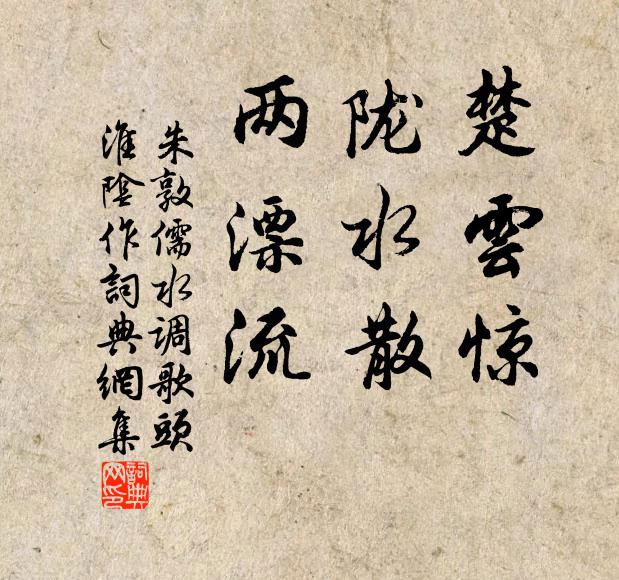 楚雲惊
陇水散
两漂流
朱敦儒水调歌頭
淮陰作詞典網集
詞典网印